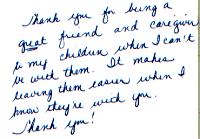 Thank you for being a
great friend and caregiver
to my children when I can't
be with them. It makes
leaving them easier when I
know they're with you.
Thank you!